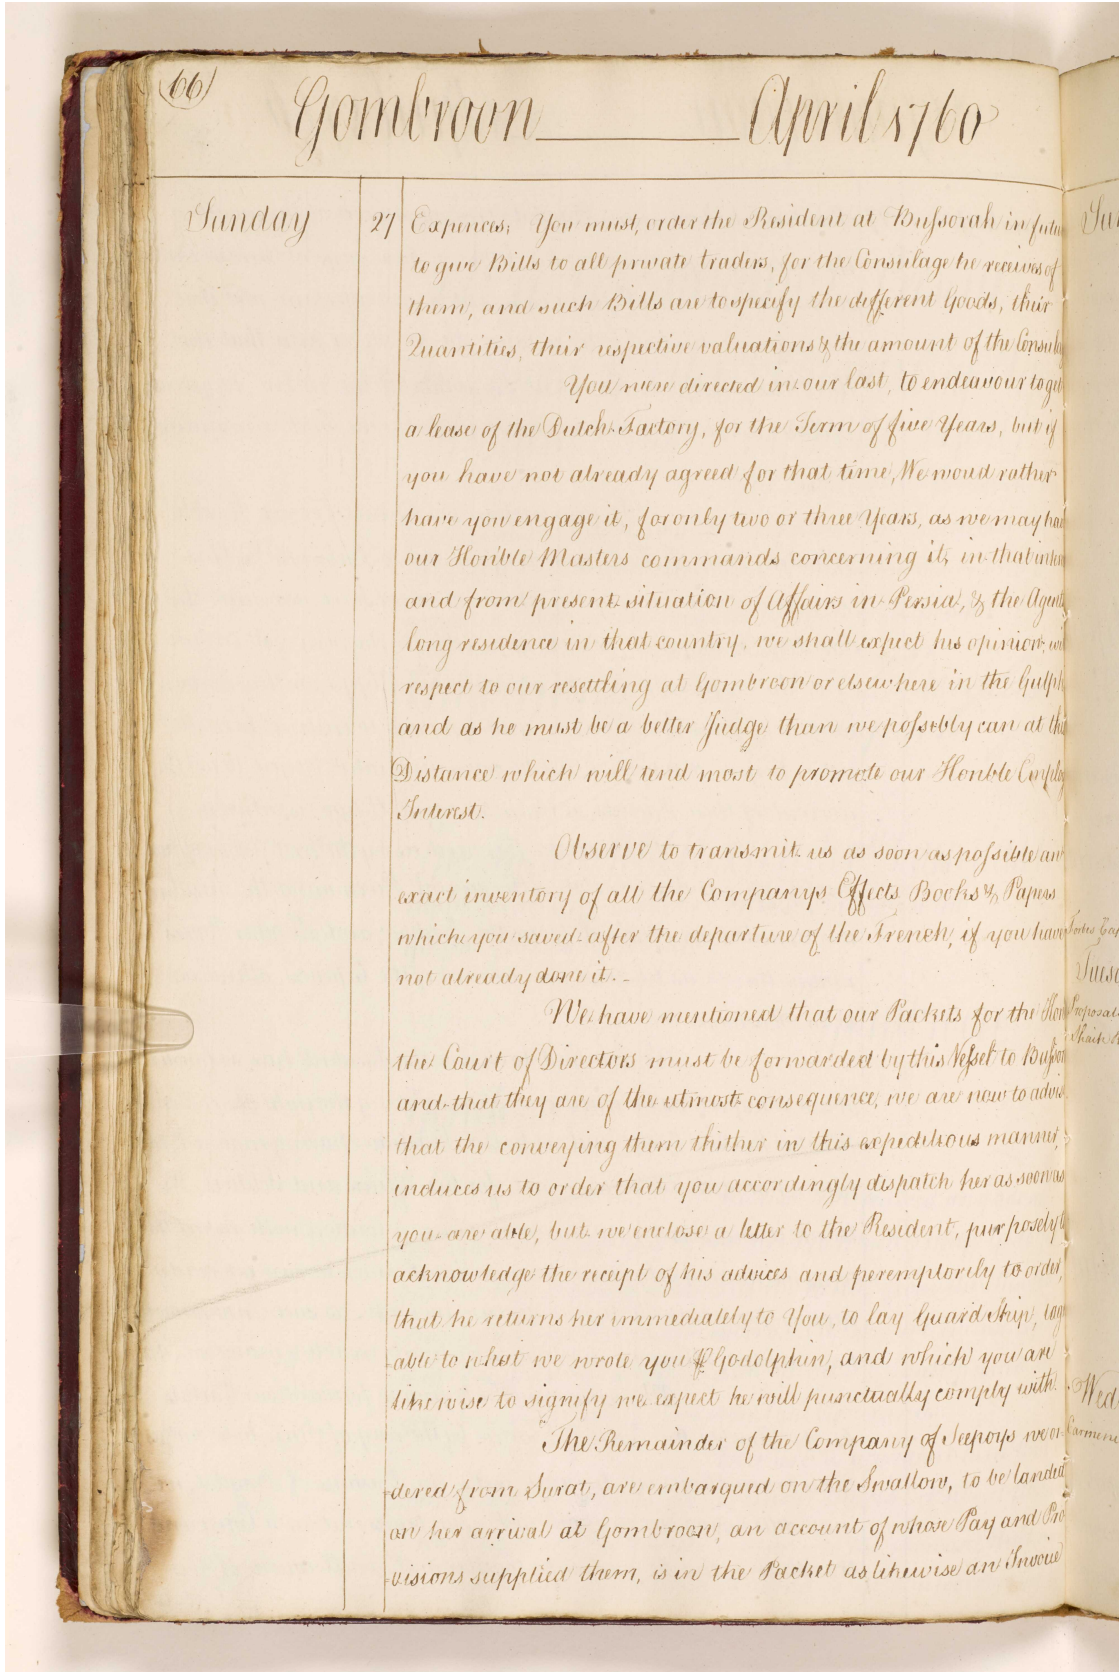 66
Gombroon April 1760
Sunday 27 Expences; You must, order the Resident at Bussorah in futu
to give Bills to all private traders, for the Consulage he receives of
them, and such Bills are to specify the different Goods, their
Quantities, their respective valuations & the amount of the Consula
You were directed in our last, to endeavour to get
a lease of the Dutch Factory, for the Term of five Years, but if
you have not already agreed for that time, We woud rather
have you engage it, for only two or three Years, as we may ha
our Honble Masters commands concerning it, in that inter
and from present situation of Affairs in Persia, & the Agents
long residence in that country, we shall expect his opinion, wi
respect to our resettling at Gombroon or elsewhere in the Gulph
and as he must be a better Judge than we possebly can at this
Distance which will tend most to promote our Honble Employ
Interest.
Observe to transmit us as soon as possible an
exact inventory of all the Companys Effects Books & Papers
which you saved after the departure of the French, if you have
not already done it. -
We have mentioned that our Packets for the Hon
the Court of Directors must be forwarded by this Vessel to Bussor
and that they are of the utmost consequence, we are now to advise
that the conveying them thither in this expeditious manner,
induces us to order that you accordingly dispatch her as soon as
you are able, but we enclose a letter to the Resident, purposely t
acknowledge the receipt of his advices and peremptorily to order,
that he returns her immediately to You, to lay Guard Ship, tag
-able to what we wrote you ⅌ Godolphin, and which you are
likewise to signify we expect he will punctually comply with.
The Remainder of the Company of Seepoys we or-
-dered from Surat, are embarqued on the Swallow, to be landed
on her arrival at Gombroon, an account of whose Pay and Pro
-visions supplied them, is in the Packet as likewise an Invoice
Wed